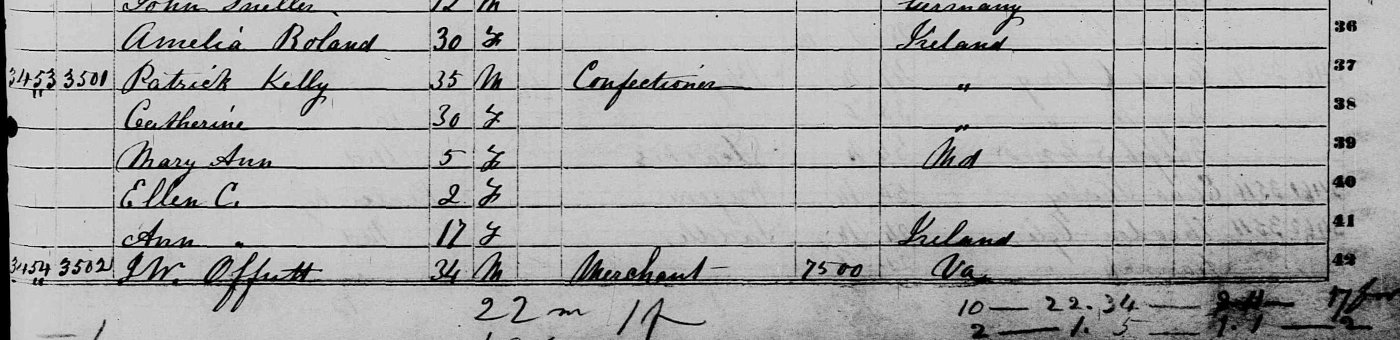 John 12 M Germany
Amelia Roland 30 F Ireland 36
3453 3501 Patrick Kelly 35 M Confectioner " 37
Catherine 30 F " 38
Mary Ann 5 F Md 39
Ellen C. 2 F 40
Ann " 17 F Ireland 41
3454 3502 J W. Offutt 34 M Merchant 7500 Va 42
22 m 1 f 10 — 22. 34 —
1 2 — 1. 5 — 1. 1 — 2